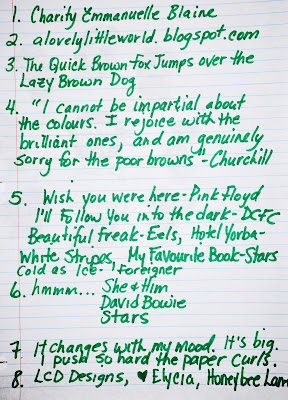 1. Charity Emmanuelle Blaine
2. alovelylittleworld.blogspot.com
3. The Quick Brown Fox Jumps over the
Lazy Brown Dog
4. "I cannot be impartial about
the colours. I rejoice with the
brilliant ones, and am genuinely
sorry for the poor browns" - Churchill
5. Wish you were here - Pink Floyd
I'll Follow You into the dark - DCFC
Beautiful Freak - Eels, Hotel Yorba -
White Stripes, My Favourite Book - Stars
Cold as Ice - Foreigner
6. hmmm... She & Him
David Bowie
Stars
7. It changes with my mood. It's big.
I push so hard the paper curls.
8. LCD Designs, ♥ Elycia, Honeybee Lam